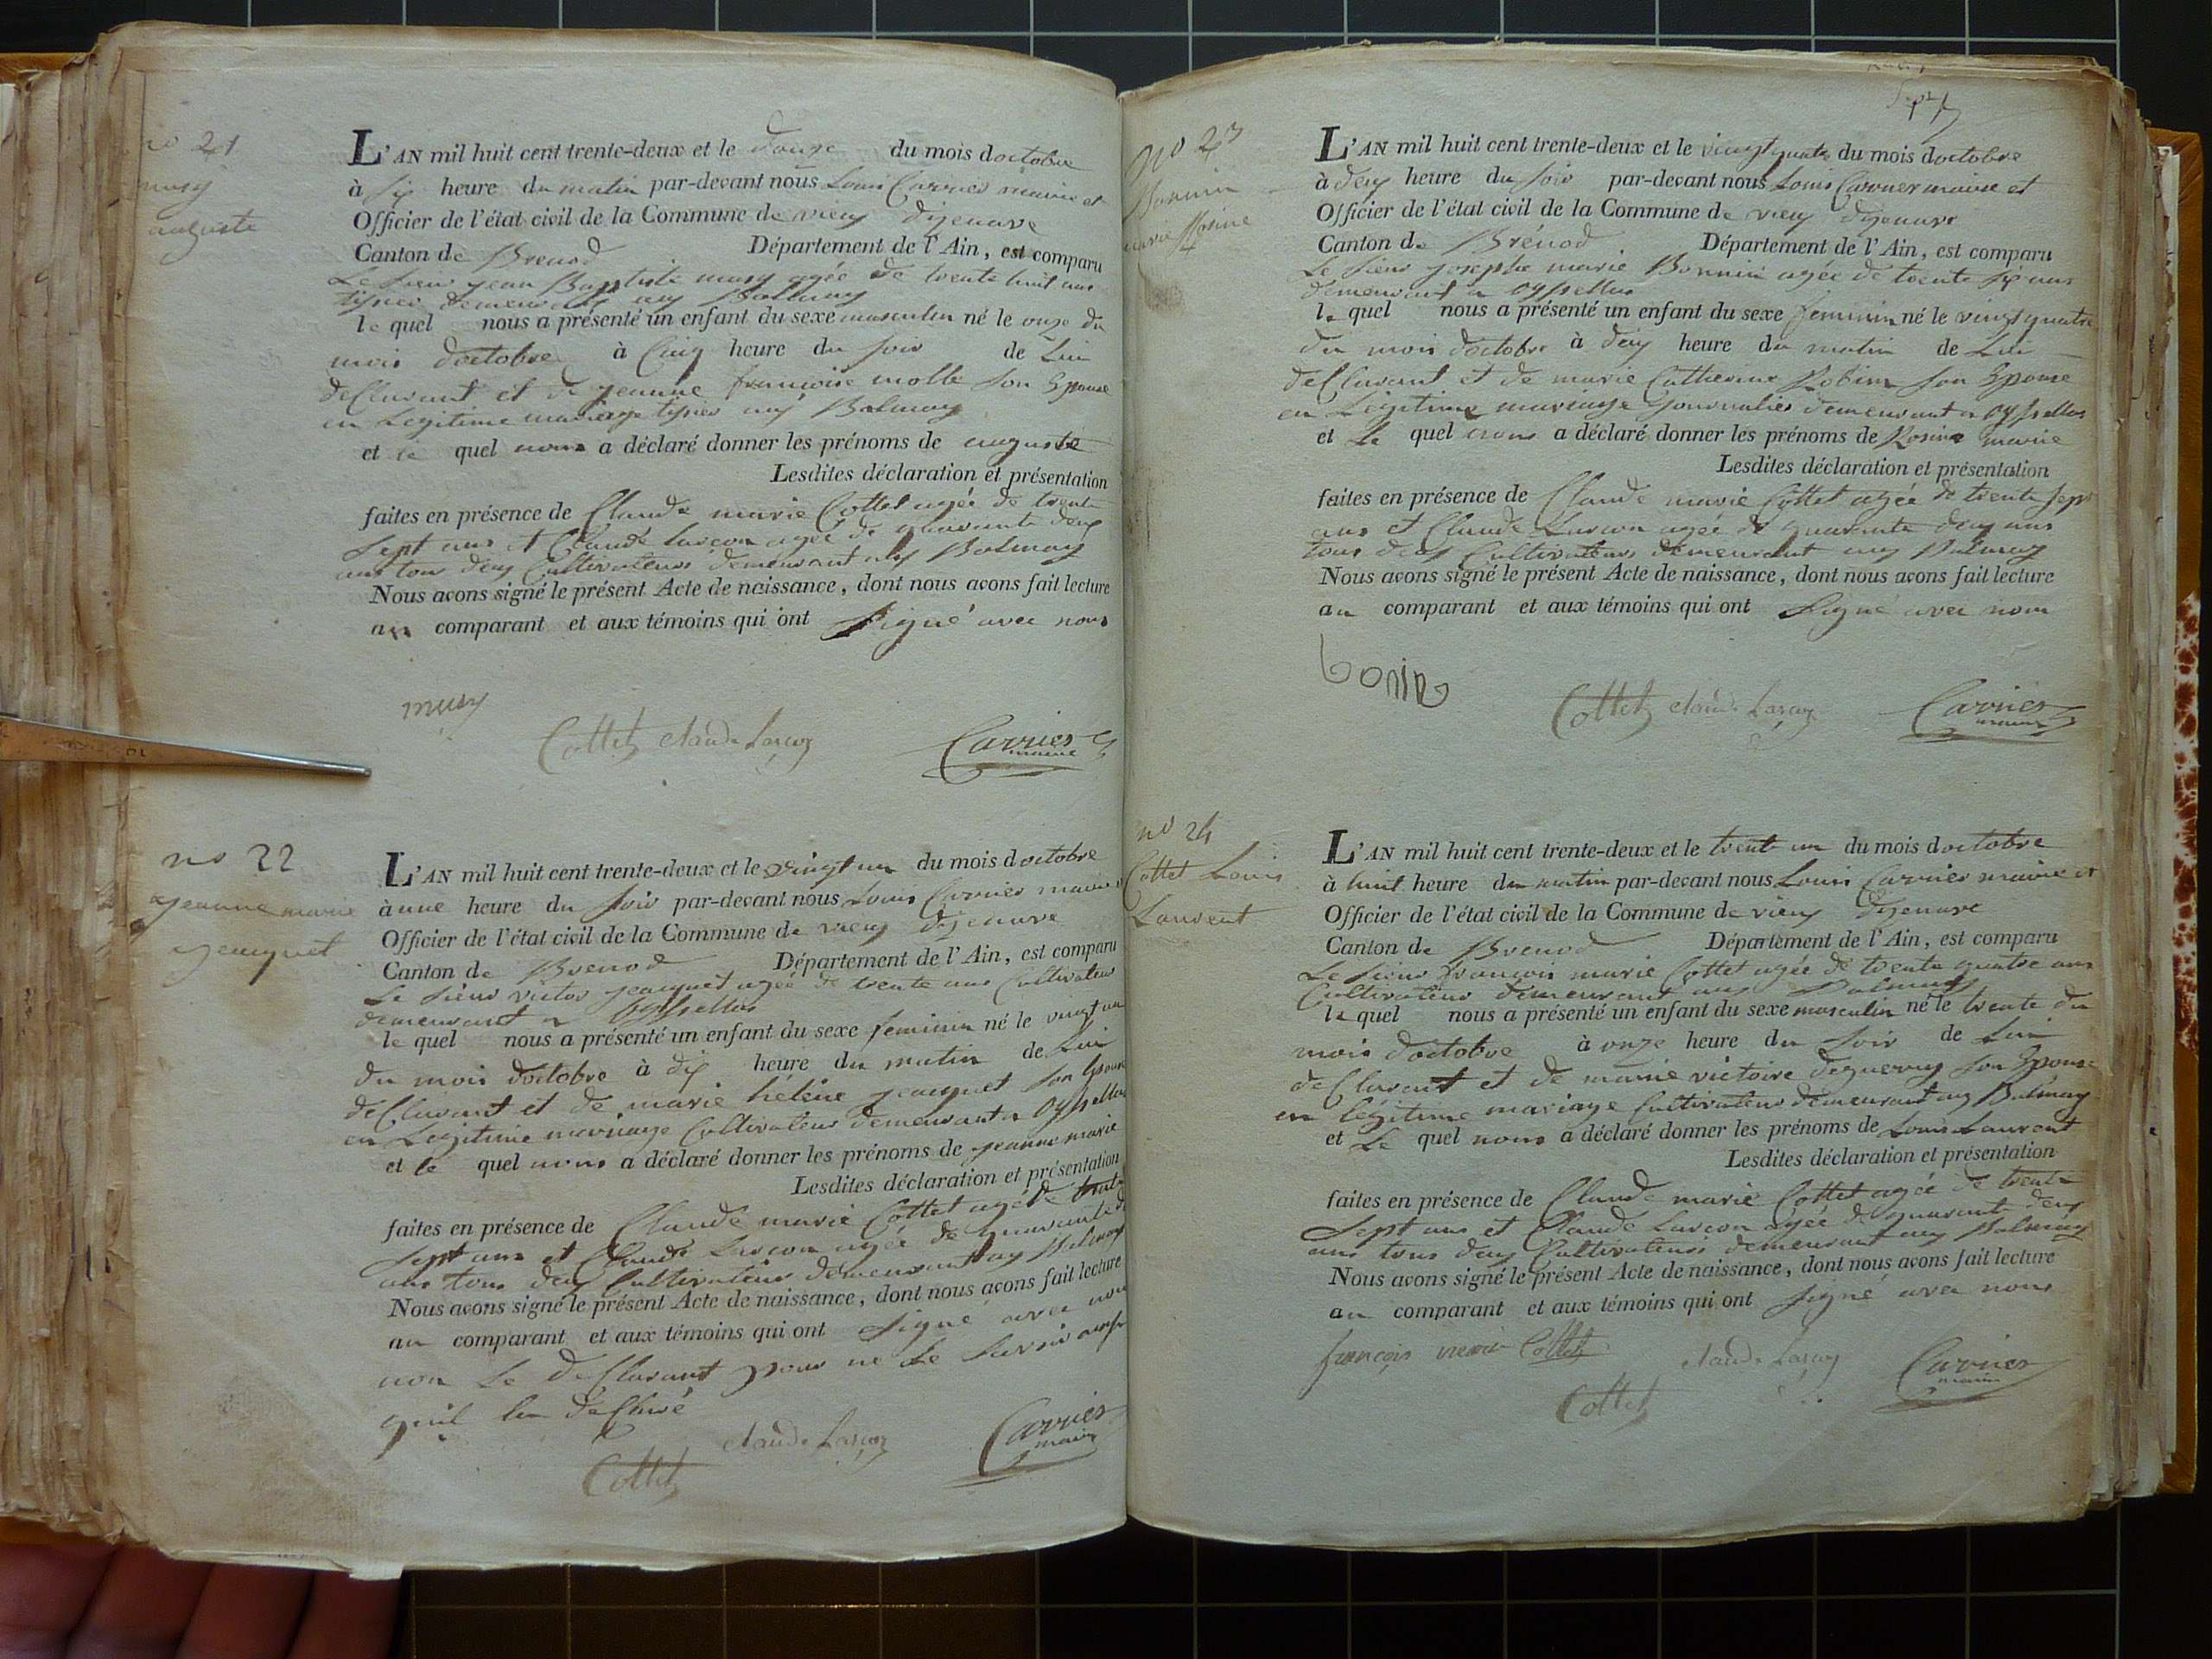 no 21
musy
auguste
L'AN mil huit cent trente-deux et le douze du mois doctobre
à six heure du matin par-devant nous Louis Carrier maire et
Officier de l'état civil de la Commune de vieux dizenave
Canton de Brenod Département de l'Ain, est comparu
Le sieur jean Baptiste musy agée de trente huit ans
tissier demeurant aux Balmay
le quel nous a présenté un enfant du sexe masculin né le onze du
mois doctobre à Cinq heure du soir de Lui
deClarant et de jeanne francoise molle son Epouse
en Legitime mariage tissier aux Balmay
et le quel nous a déclaré donner les prénoms de auguste
Lesdites déclaration et présentation
faites en présence de Claude marie Cottet agée de trente
sept ans et Claude Larcon agée de quarante deux
ans tous deux Cultivateurs demeurant aux Balmay
Nous avons signé le présent Acte de naissance, dont nous avons fait lecture
au comparant et aux témoins qui ont signé avec nous
musy
Cottet claude Larcon Carrier
maire
no 22
jeanne marie
jeacquet
L'AN mil huit cent trente-deux et le vingt un du mois doctobre
à une heure du soir par-devant nous Louis Carrier maire
Officier de l'état civil de la Commune de vieux dizenave
Canton de Brenod Département de l'Ain, est comparu
Le sieur victor jeacquet agée de trente ans Cultivateur
demeurant a Oyssellas
le quel nous a présenté un enfant du sexe feminin né le vingt un
du mois doctobre à dix heure du matin de Lui
deClarant et de marie hélène jeacquet son Epouse
en Legitime mariage Cultivateur demeurant a Oyssellas
et le quel nous a déclaré donner les prénoms de jeanne marie
Lesdites déclaration et présentation
faites en présence de Claude marie Cottet agée de trente
sept ans et Claude Larcon agée de quarante d
ans tous deux Cultivateur demeurant aux Balmay
Nous avons signé le présent Acte de naissance, dont nous avons fait lecture
au comparant et aux témoins qui ont signé avec nous
non Le deClarant pour ne Le savoir
quil la deClaré
claude Larcon Carrier
Cottet maire
no 23
Bonnin
marie Rosine
L'AN mil huit cent trente-deux et le vingt quatre du mois doctobre
à deux heure du soir par-devant nous Louis Carrier maire et
Officier de l'état civil de la Commune de vieux dizenave
Canton de Brénod Département de l'Ain, est comparu
Le sieur josephe marie Bonnin agée de trente six ans
demeurant a Oyssellas
le quel nous a présenté un enfant du sexe feminin né le vingt quatre
du mois doctobre à deux heure du matin de Lui
deClarant et de marie Catherine Robin son Epouse
en Legitime mariage journalier demeurant a Oyssellas
et Le quel nous a déclaré donner les prénoms de Rosine marie
Lesdites déclaration et présentation
faites en présence de Claude marie Cottet agée de trente sept
ans et Claude Larcon agée de quarante deux ans
tous deux Cultivateurs demeurant aux Balmay
Nous avons signé le présent Acte de naissance, dont nous avons fait lecture
au comparant et aux témoins qui ont signé avec nous
bonin
Cottet claude Larcon Carrier
maire
no 24
Cottet Louis
Laurent
L'AN mil huit cent trente-deux et le trent un du mois doctobre
à huit heure du matin par-devant nous Louis Carrier maire et
Officier de l'état civil de la Commune de vieux dizenave
Canton de Brenod Département de l'Ain, est comparu
Le sieur francois marie Cottet agée de trente quatre ans
Cultivateur demeurant aux Balmay
le quel nous a présenté un enfant du sexe masculin né le trente du
mois doctobre à onze heure du soir de Lui
deClarant et de marie victoire deguerry son Epouse
en légitime mariage Cultivateur demeurant aux Balmay
et Le quel nous a déclaré donner les prénoms de Louis Laurent
Lesdites déclaration et présentation
faites en présence de Claude marie Cottet agée de trente
sept ans et Claude Larcon agée de quarante deux
ans tous deux Cultivateurs demeurant aux Balmay
Nous avons signé le présent Acte de naissance, dont nous avons fait lecture
au comparant et aux témoins qui ont signé avec nous
françois marie Cottet claude Larcon Carrier
Cottet maire